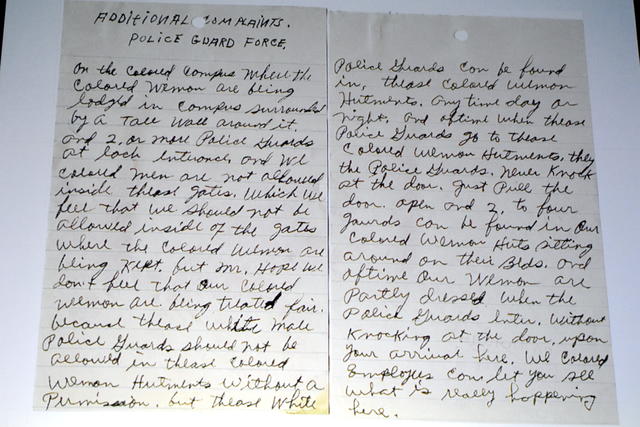 ADDITIONAL COMPLAINTS.
POLICE GUARD FORCE.
On the Colored Campus Where the
Colored Wemon are being
lodgd in Campus surrounded
by A Tall Wall around it.
and 2. or more Police Guards
at each Entrance, and We
Colored Men are not allowed
inside these gates. Which We
feel that We Should not be
allowed inside of the gates
Where the Colored Wemon are
being Kept. but Mr. Hope We
don't feel that our Colored
Wemon are being treated fair.
because thease White Male
Police Guards Should not be
allowed in these Colored
Wemon Hutments Without a
Permission. but thease White
Police Guards can be found
in, thease Colored Wemon
Hutments. Any time day or
night. and oftime when these
Police Guards go to these
Colored Wemon Hutments. they
the Police Guards. Never Knock
at the door. Just Pull the
door. open and 2. to four
gaurds can be found in Our
Colored Wemon Huts sitting
around on their Beds. and
oftime Our Wemon are
Partly dressed When the
Police Guards Enter. Without
Knocking at the door. upon
Your arrival here. We Colored
Employees Can. let you see
What is really happening
here.